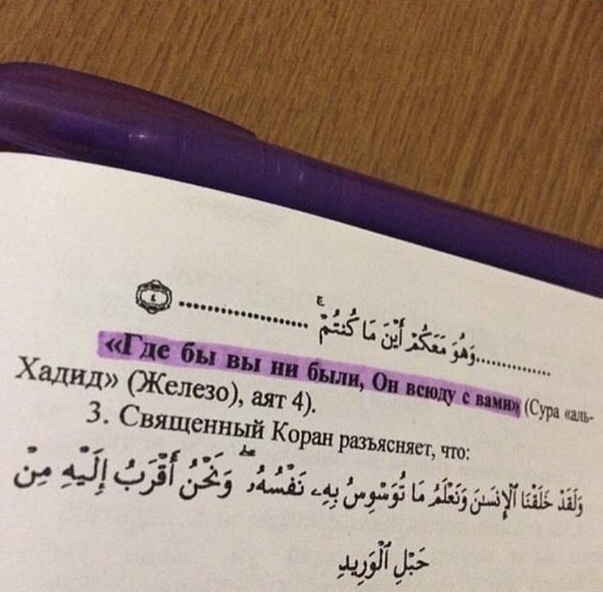 ..............وَهُوَ مَعَكُمْ أَيْنَ مَا كُنتُمْ ۚ .................. ٤
«Где бы вы ни были, Он всюду с вами» (Сура «аль-
Хадид» (Железо), аят 4).
3. Священный Коран разъясняет, что:
وَلَقَدْ خَلَقْنَا ٱلْإِنسَٰنَ وَنَعْلَمُ مَا تُوَسْوِسُ بِهِۦ نَفْسُهُۥ ۖ وَنَحْنُ أَقْرَبُ إِلَيْهِ مِنْ
حَبْلِ ٱلْوَرِيدِ